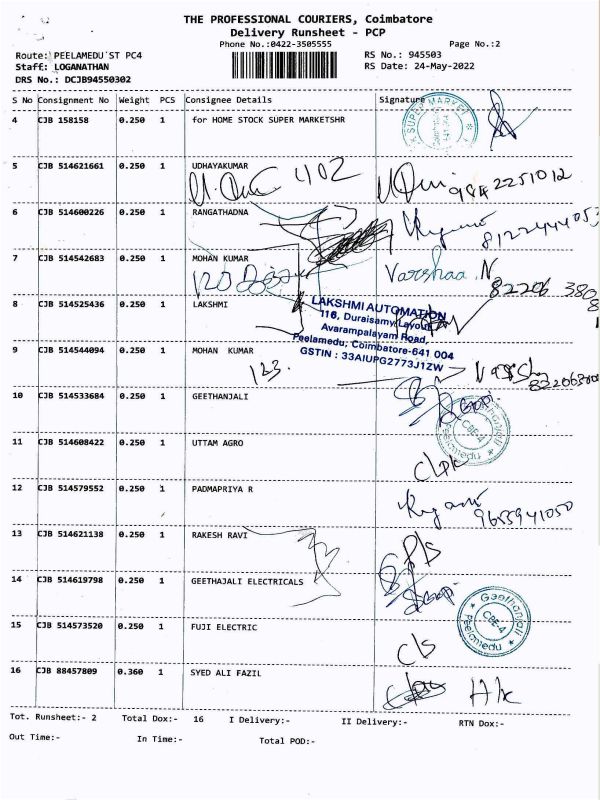 THE PROFESSIONAL COURIERS, Coimbatore
Delivery Runsheet - PCP
Phone No.:0422-3505555
Page No.:2
Route: PEELAMEDU ST PC4
RS No.: 945503
Staff: LOGANATHAN
RS Date: 24-May-2022
DRS No.: DCJB94550302
S No Consignment No Weight PCS Consignee Details Signature
4 CJB 158158 0.250 1 for HOME STOCK SUPER MARKETSHR
SUPER MARKET
5 CJB 514621661 0.250 1 UDHAYAKUMAR
402
984 2251012
6 CJB 514600226 0.250 1 RANGATHADNA
8122444053
7 CJB 514542683 0.250 1 MOHAN KUMAR
Varshaa.N
82206 380
8 CJB 514525436 0.250 1 LAKSHMI
LAKSHMI AUTOMATION
116, Duraisamy Layout,
Avarampalayam Road,
Peelamedu, Coimbatore-641 004
GSTIN : 33AIUPG2773J1ZW
9 CJB 514544094 0.250 1 MOHAN KUMAR
123.
10 CJB 514533684 0.250 1 GEETHANJALI
Geethanjali
CBE-4
Peelamedu
11 CJB 514608422 0.250 1 UTTAM AGRO
12 CJB 514579552 0.250 1 PADMAPRIYA R
9655941050
13 CJB 514621138 0.250 1 RAKESH RAVI
14 CJB 514619798 0.250 1 GEETHAJALI ELECTRICALS
Geethanjali
CBE-4
Peelamedu
15 CJB 514573520 0.250 1 FUJI ELECTRIC
16 CJB 88457809 0.360 1 SYED ALI FAZIL
Tot. Runsheet:- 2 Total Dox:- 16 I Delivery:- II Delivery:- RTN Dox:-
Out Time:- In Time:- Total POD:-